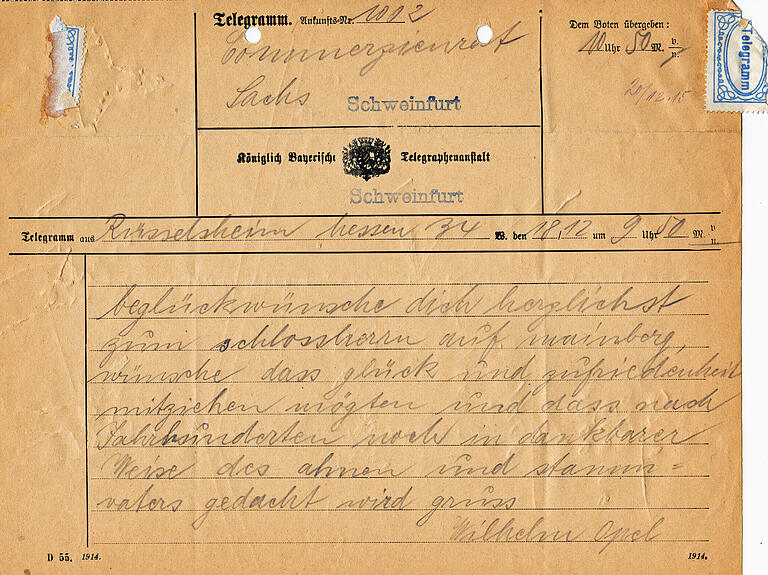 Telegramm. Ankunfts-Nr. 1012
Commerzienrat
Sachs Schweinfurt
Dem Boten übergeben:
10 Uhr 50 M. v/n.
20/12.15
Telegramm
Königlich Bayerische Telegraphenanstalt
Schweinfurt
Telegramm aus Rüsselsheim hessen 34 W. den 18,12 um 9 Uhr 50 M. v/n.
beglückwünsche dich herzlichst
zum schlossherrn auf mainberg,
wünsche dass glück und zufriedenheit
mitziehen mögten und dass nach
Jahrhunderten noch in dankbarer
Weise des ahnen und stamm=
vaters gedacht wird gruss
Wilhelm Opel
D 55. 1914.
1914.